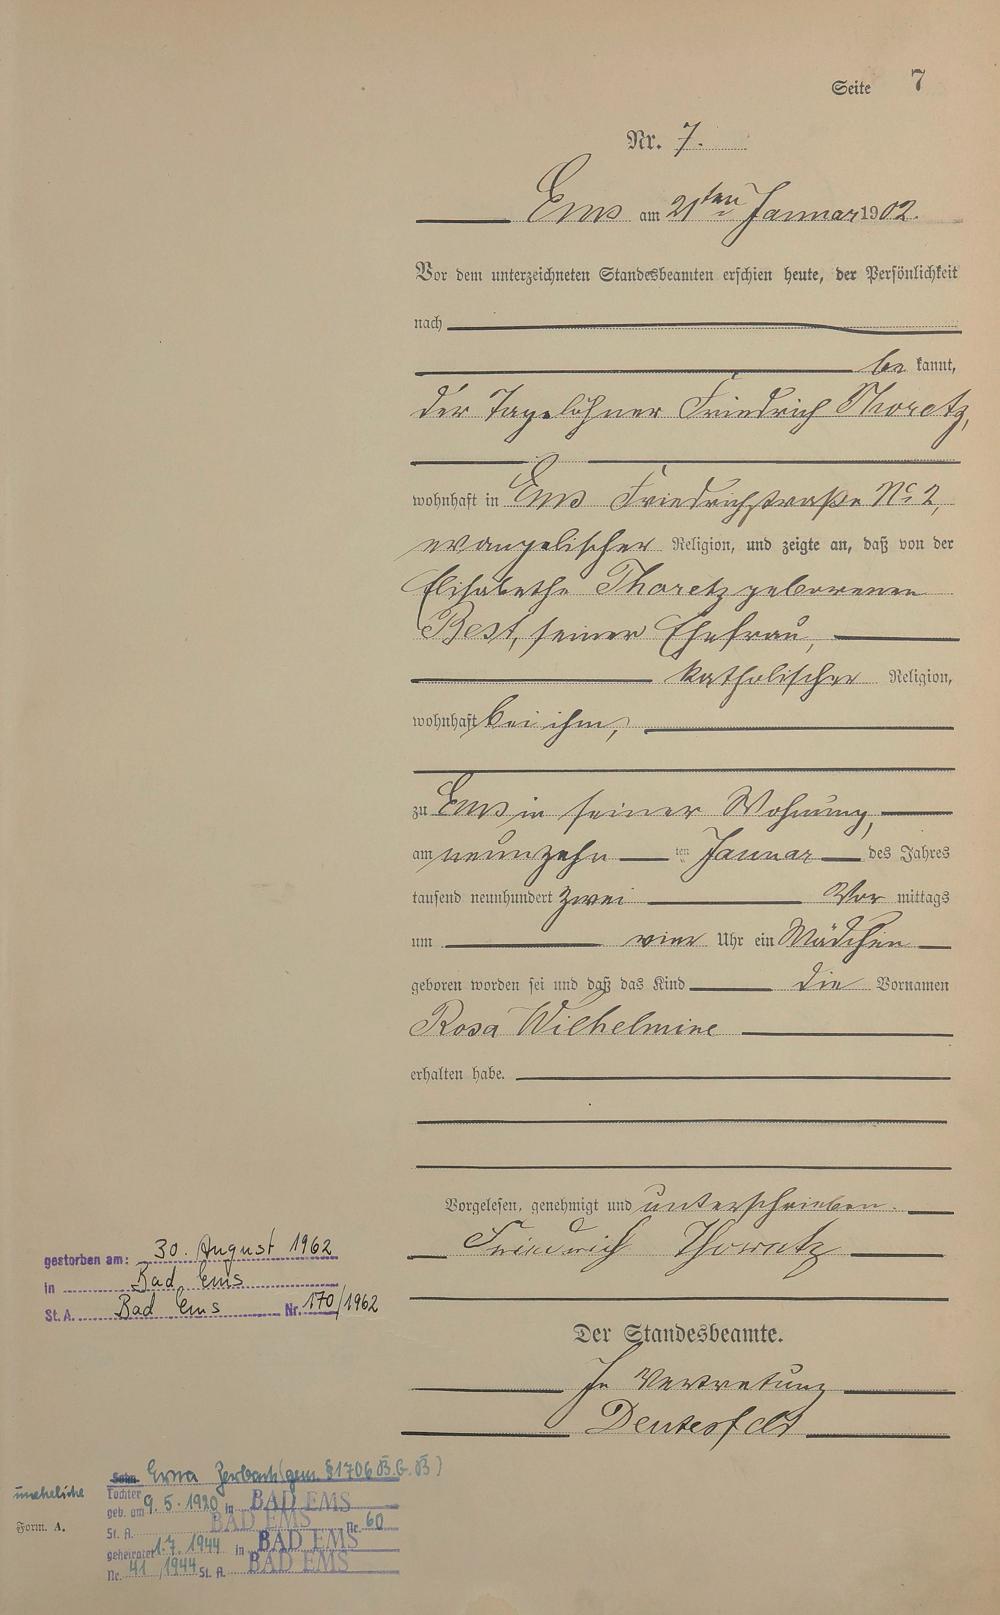 Seite 7
Nr. 7.
Ems am 21ten Januar 1902.
Vor dem unterzeichneten Standesbeamten erschien heute, der Persönlichkeit
nach
be kannt,
der Tagelöhner Friedrich Thoretz,
wohnhaft in Ems Friedrichstraße No 2,
evangelischer Religion, und zeigte an, daß von der
Elisabethe Thoretz geborenen
Best, seiner Ehefrau,
katholischer Religion,
wohnhaft bei ihm,
zu Ems in seiner Wohnung,
am neunzehn ten Januar des Jahres
tausend neunhundert zwei Vor mittags
um vier Uhr ein Mädchen
geboren worden sei und daß das Kind die Vornamen
Rosa Wilhelmine
erhalten habe.
Vorgelesen, genehmigt und unterschrieben.
Friedrich
Der Standesbeamte.
In Vertretung
gestorben am: 30. August 1962
in Bad Ems
St. A. Bad Ems Nr. 170/1962
Sohn Erna Zerbach (gem. §1706 B.G.B)
uneheliche Tochter
geb. am 9.5.1920 in BAD EMS
St. A. BAD EMS Nr. 60
geheiratet 1.7.1944 in BAD EMS
Nr. 41/1944 St. A. BAD EMS
Form. A.